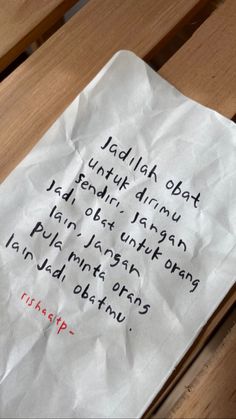 Jadilah obat
untuk dirimu
sendiri, Jangan
Jadi obat untuk orang
lain, Jangan
pula minta orang
lain Jadi obatmu.
rishaqltp-